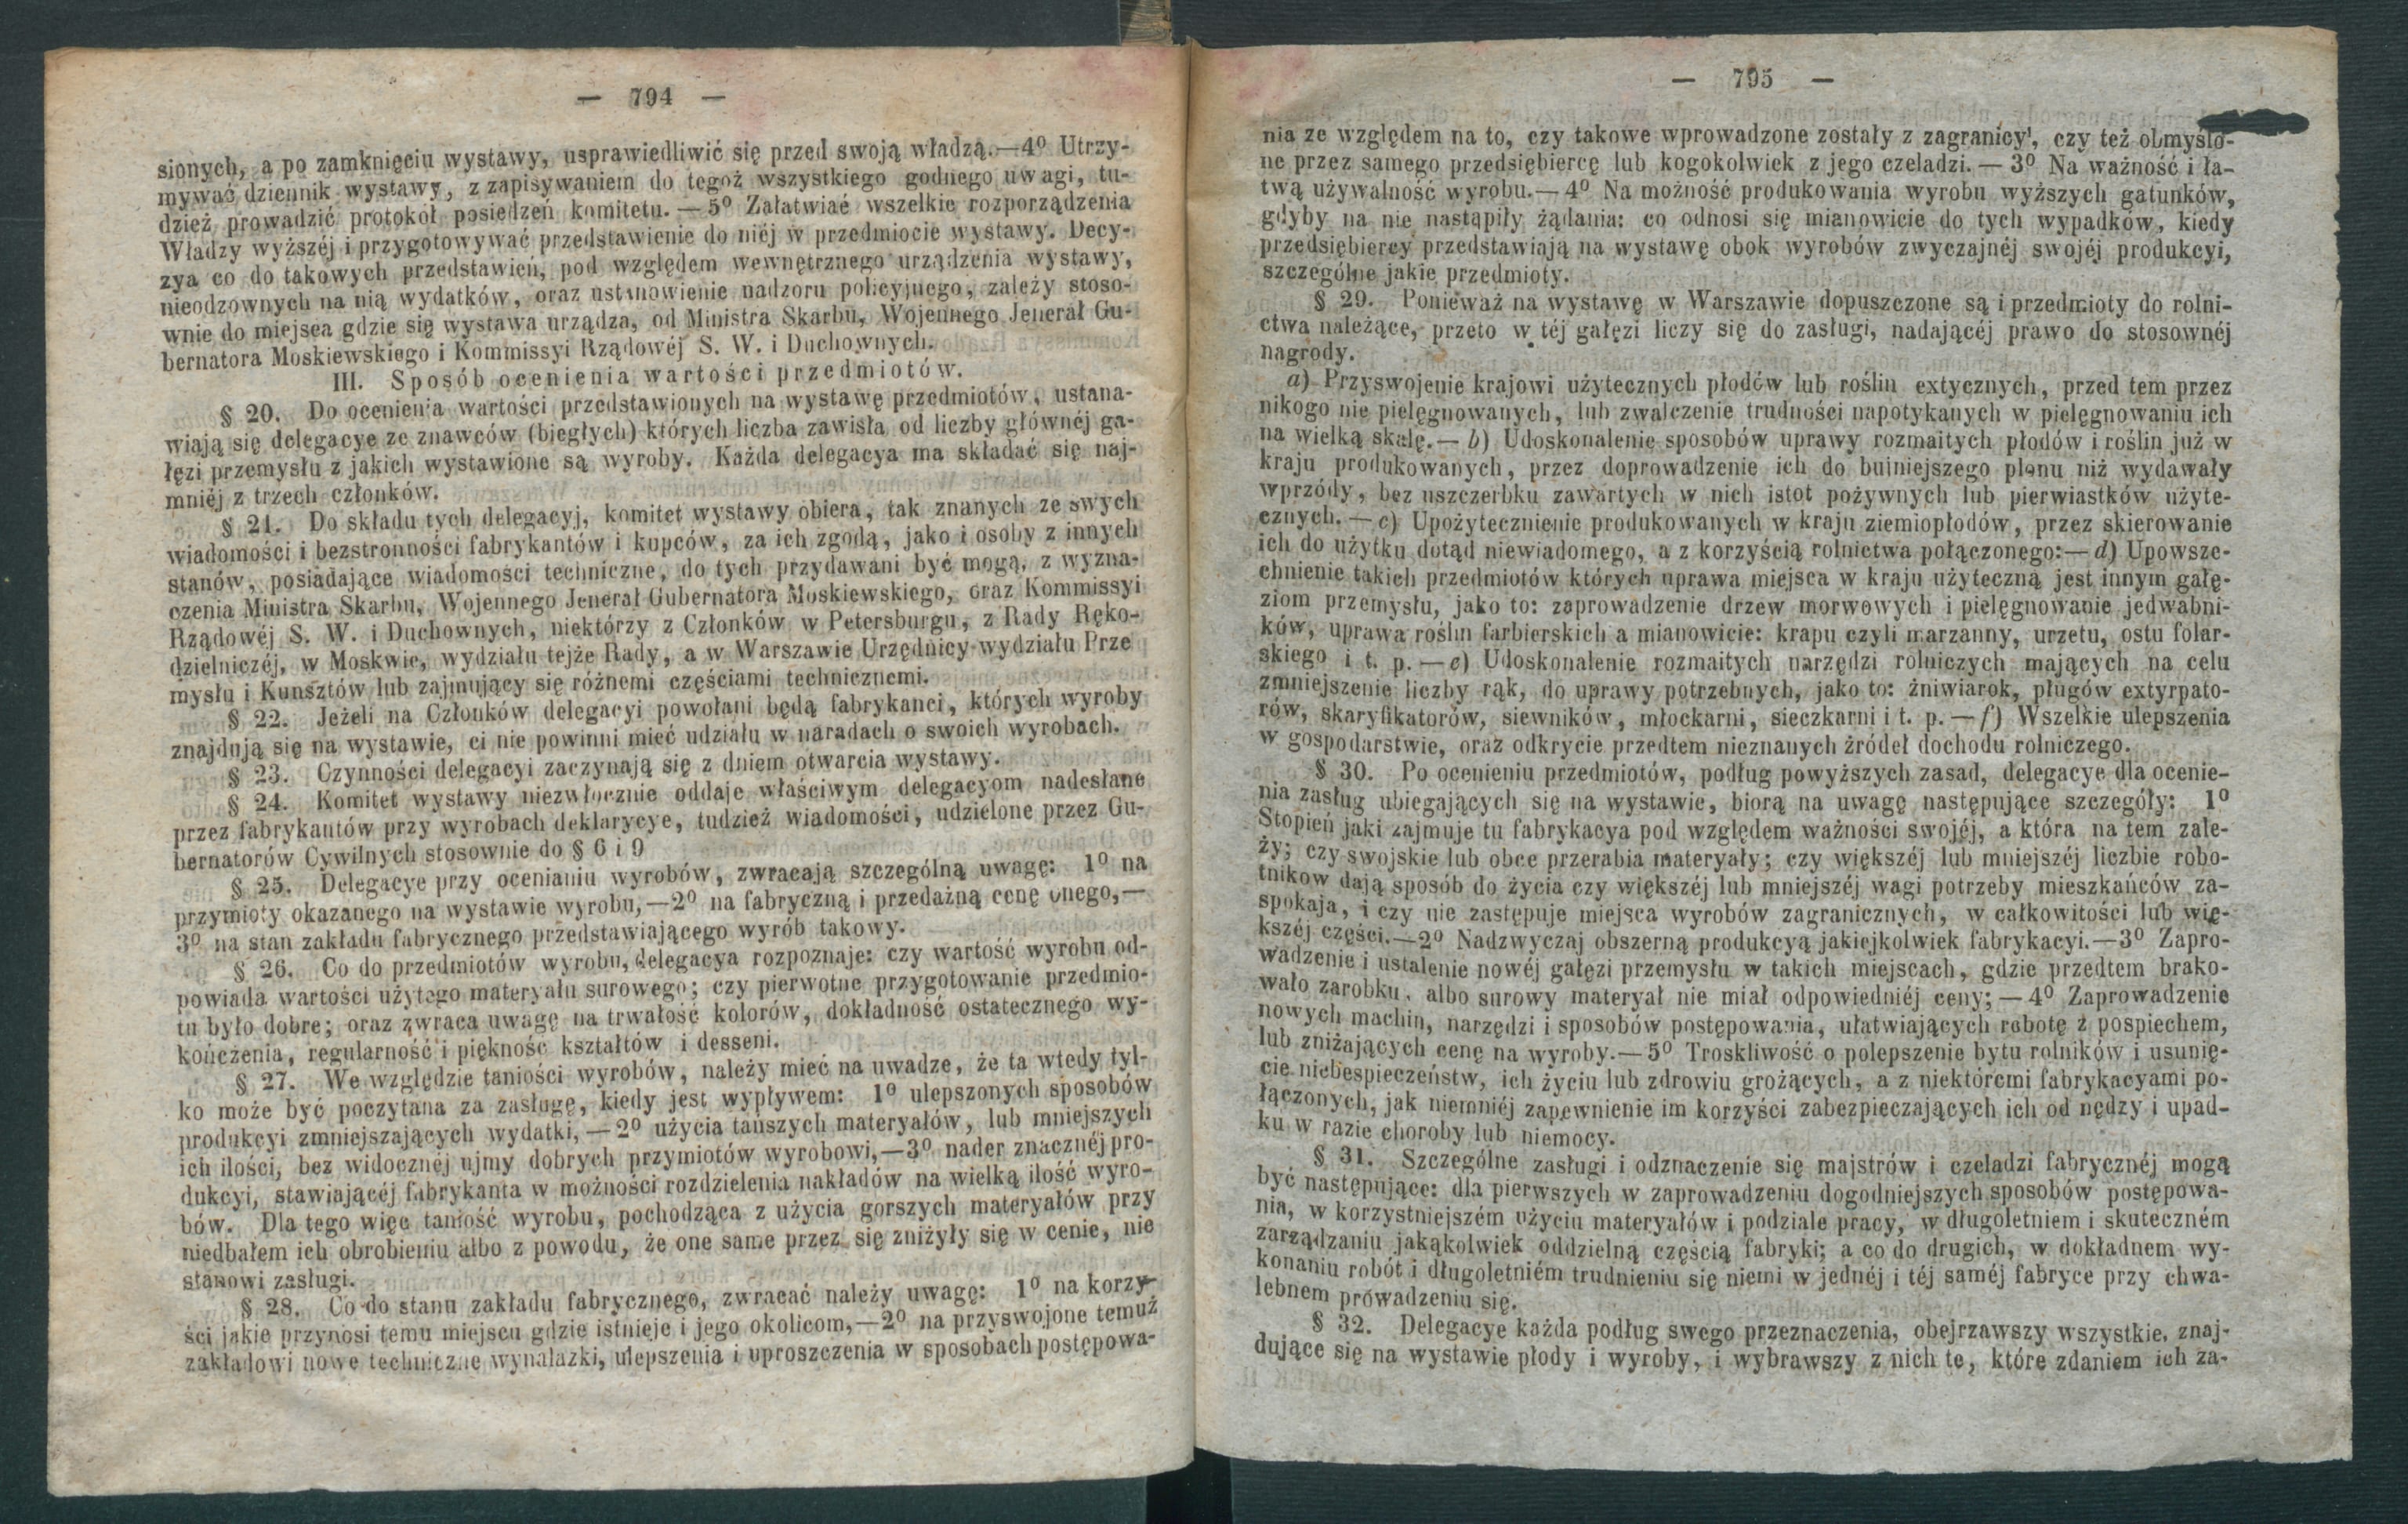 — 794 —
sionych, a po zamknięciu wystawy, usprawiedliwić się przed swoją władzą.—4º Utrzy-
mywać dziennik wystawy, z zapisywaniem do tegoż wszystkiego godnego uwagi, tu-
dzież prowadzić protokół posiedzeń komitetu.—5º Załatwiać wszelkie rozporządzenia
Władzy wyższéj i przygotowywać przedstawienie do niéj w przedmiocie wystawy. Decy-
zya co do takowych przedstawień, pod względem wewnętrznego urządzenia wystawy,
nieodzownych na nią wydatków, oraz ustanowienie nadzoru policyjnego, zależy stoso-
wnie do miejsca gdzie się wystawa urządza, od Ministra Skarbu, Wojennego Jenerał Gu-
bernatora Moskiewskiego i Kommissyi Rządowéj S. W. i Duchownych.
III. Sposób ocenienia wartości przedmiotów.
§ 20. Do ocenienia wartości przedstawionych na wystawę przedmiotów, ustana-
wiają się delegacye ze znawców (biegłych) których liczba zawisła od liczby głównéj ga-
łęzi przemysłu z jakich wystawione są wyroby. Każda delegacya ma składać się naj-
mniéj z trzech członków.
§ 21. Do składu tych delegacyj, komitet wystawy obiera, tak znanych ze swych
wiadomości i bezstronności fabrykantów i kupców, za ich zgodą, jako i osoby z innych
stanów, posiadające wiadomości techniczne, do tych przydawani być mogą, z wyzna-
czenia Ministra Skarbu, Wojennego Jenerał Gubernatora Moskiewskiego, oraz Kommissyi
Rządowéj S. W. i Duchownych, niektórzy z Członków w Petersburgu, z Rady Ręko-
dzielniczéj, w Moskwie, wydziału tejże Rady, a w Warszawie Urzędnicy wydziału Prze
mysłu i Kunsztów lub zajmujący się różnemi częściami technicznemi.
§ 22. Jeżeli na Członków delegacyi powołani będą fabrykanci, których wyroby
znajdują się na wystawie, ci nie powinni mieć udziału w naradach o swoich wyrobach.
§ 23. Czynności delegacyi zaczynają się z dniem otwarcia wystawy.
§ 24. Komitet wystawy niezwłocznie oddaje właściwym delegacyom nadesłane
przez fabrykantów przy wyrobach deklarycye, tudzież wiadomości, udzielone przez Gu-
bernatorów Cywilnych stosownie do § 6 i 9
§ 25. Delegacye przy ocenianiu wyrobów, zwracają szczególną uwagę: 1º na
przymioty okazanego na wystawie wyrobu,—2º na fabryczną i przedażną cenę onego,—
3º na stan zakładu fabrycznego przedstawiającego wyrób takowy.
§ 26. Co do przedmiotów wyrobu, delegacya rozpoznaje: czy wartość wyrobu od-
powiada wartości użytego materyału surowego; czy pierwotne przygotowanie przedmio-
tu było dobre; oraz zwraca uwagę na trwałość kolorów, dokładność ostatecznego wy-
kończenia, regularność i piękność kształtów i desseni.
§ 27. We względzie taniości wyrobów, należy mieć na uwadze, że ta wtedy tyl-
ko może być poczytana za zasługę, kiedy jest wypływem: 1º ulepszonych sposobów
produkcyi zmniejszających wydatki,—2º użycia tańszych materyałów, lub mniejszych
ich ilości, bez widocznéj ujmy dobrych przymiotów wyrobowi,—3º nader znacznéj pro-
dukcyi, stawiającéj fabrykanta w możności rozdzielenia nakładów na wielką ilość wyro-
bów. Dla tego więc taniość wyrobu, pochodząca z użycia gorszych materyałów przy
niedbałem ich obrobieniu albo z powodu, że one same przez się zniżyły się w cenie, nie
stanowi zasługi.
§ 28. Co do stanu zakładu fabrycznego, zwracać należy uwagę: 1º na korzy-
ści jakie przynosi temu miejscu gdzie istnieje i jego okolicom,—2º na przyswojone temuż
zakładowi nowe techniczne wynalazki, ulepszenia i uproszczenia w sposobach postępowa-
— 795 —
nia ze względem na to, czy takowe wprowadzone zostały z zagranicy, czy też obmyślo-
ne przez samego przedsiębiercę lub kogokolwiek z jego czeladzi.—3º Na ważność i ła-
twą używalność wyrobu.—4º Na możność produkowania wyrobu wyższych gatunków,
gdyby na nie nastąpiły żądania: co odnosi się mianowicie do tych wypadków, kiedy
przedsiębiercy przedstawiają na wystawę obok wyrobów zwyczajnéj swojéj produkcyi,
szczególne jakie przedmioty.
§ 29. Ponieważ na wystawę w Warszawie dopuszczone są i przedmioty do rolni-
ctwa należące, przeto w téj gałęzi liczy się do zasługi, nadającéj prawo do stosownéj
nagrody.
a) Przyswojenie krajowi użytecznych płodów lub roślin extycznych, przed tem przez
nikogo nie pielęgnowanych, lub zwalczenie trudności napotykanych w pielęgnowaniu ich
na wielką skalę.—b) Udoskonalenie sposobów uprawy rozmaitych płodów i roślin już w
kraju produkowanych, przez doprowadzenie ich do bujniejszego plonu niż wydawały
wprzódy, bez uszczerbku zawartych w nich istot pożywnych lub pierwiastków użyte-
cznych.—c) Upożytecznienie produkowanych w kraju ziemiopłodów, przez skierowanie
ich do użytku dotąd niewiadomego, a z korzyścią rolnictwa połączonego:—d) Upowsze-
chnienie takich przedmiotów których uprawa miejsca w kraju użyteczną jest innym gałę-
ziom przemysłu, jako to: zaprowadzenie drzew morwowych i pielęgnowanie jedwabni-
ków, uprawa roślin farbierskich a mianowicie: krapu czyli marzanny, urzetu, ostu folar-
skiego i t. p.—e) Udoskonalenie rozmaitych narzędzi rolniczych mających na celu
zmniejszenie liczby rąk, do uprawy potrzebnych, jako to: żniwiarok, pługów extyrpato-
rów, skaryfikatorów, siewników, młockarni, sieczkarni i t. p.—f) Wszelkie ulepszenia
w gospodarstwie, oraz odkrycie przedtem nieznanych źródeł dochodu rolniczego.
§ 30. Po ocenieniu przedmiotów, podług powyższych zasad, delegacye dla ocenie-
nia zasług ubiegających się na wystawie, biorą na uwagę następujące szczegóły: 1º
Stopień jaki zajmuje tu fabrykacya pod względem ważności swojéj, a która na tem zale-
ży; czy swojskie lub obce przerabia materyały; czy większéj lub mniejszéj liczbie robo-
tnikow dają sposób do życia czy większéj lub mniejszéj wagi potrzeby mieszkańców za-
spokaja, i czy nie zastępuje miejsca wyrobów zagranicznych, w całkowitości lub wię-
kszéj części.—2º Nadzwyczaj obszerną produkcyą jakiejkolwiek fabrykacyi.—3º Zapro-
wadzenie i ustalenie nowéj gałęzi przemysłu w takich miejscach, gdzie przedtem brako-
wało zarobku, albo surowy materyał nie miał odpowiedniéj ceny;—4º Zaprowadzenie
nowych machin, narzędzi i sposobów postępowania, ułatwiających robotę z pospiechem,
lub zniżających cenę na wyroby.—5º Troskliwość o polepszenie bytu rolników i usunię-
cie niebespieczeństw, ich życiu lub zdrowiu grożących, a z niektóremi fabrykacyami po-
łączonych, jak niemniéj zapewnienie im korzyści zabezpieczających ich od nędzy i upad-
ku w razie choroby lub niemocy.
§ 31. Szczególne zasługi i odznaczenie się majstrów i czeladzi fabrycznéj mogą
być następujące: dla pierwszych w zaprowadzeniu dogodniejszych sposobów postępowa-
nia, w korzystniejszém użyciu materyałów i podziale pracy, w długoletniem i skuteczném
zarządzaniu jakąkolwiek oddzielną częścią fabryki; a co do drugich, w dokładnem wy-
konaniu robót i długoletniém trudnieniu się niemi w jednéj i téj saméj fabryce przy chwa-
lebnem prowadzeniu się.
§ 32. Delegacye każda podług swego przeznaczenia, obejrzawszy wszystkie, znaj-
dujące się na wystawie płody i wyroby, i wybrawszy z nich te, które zdaniem ich za-